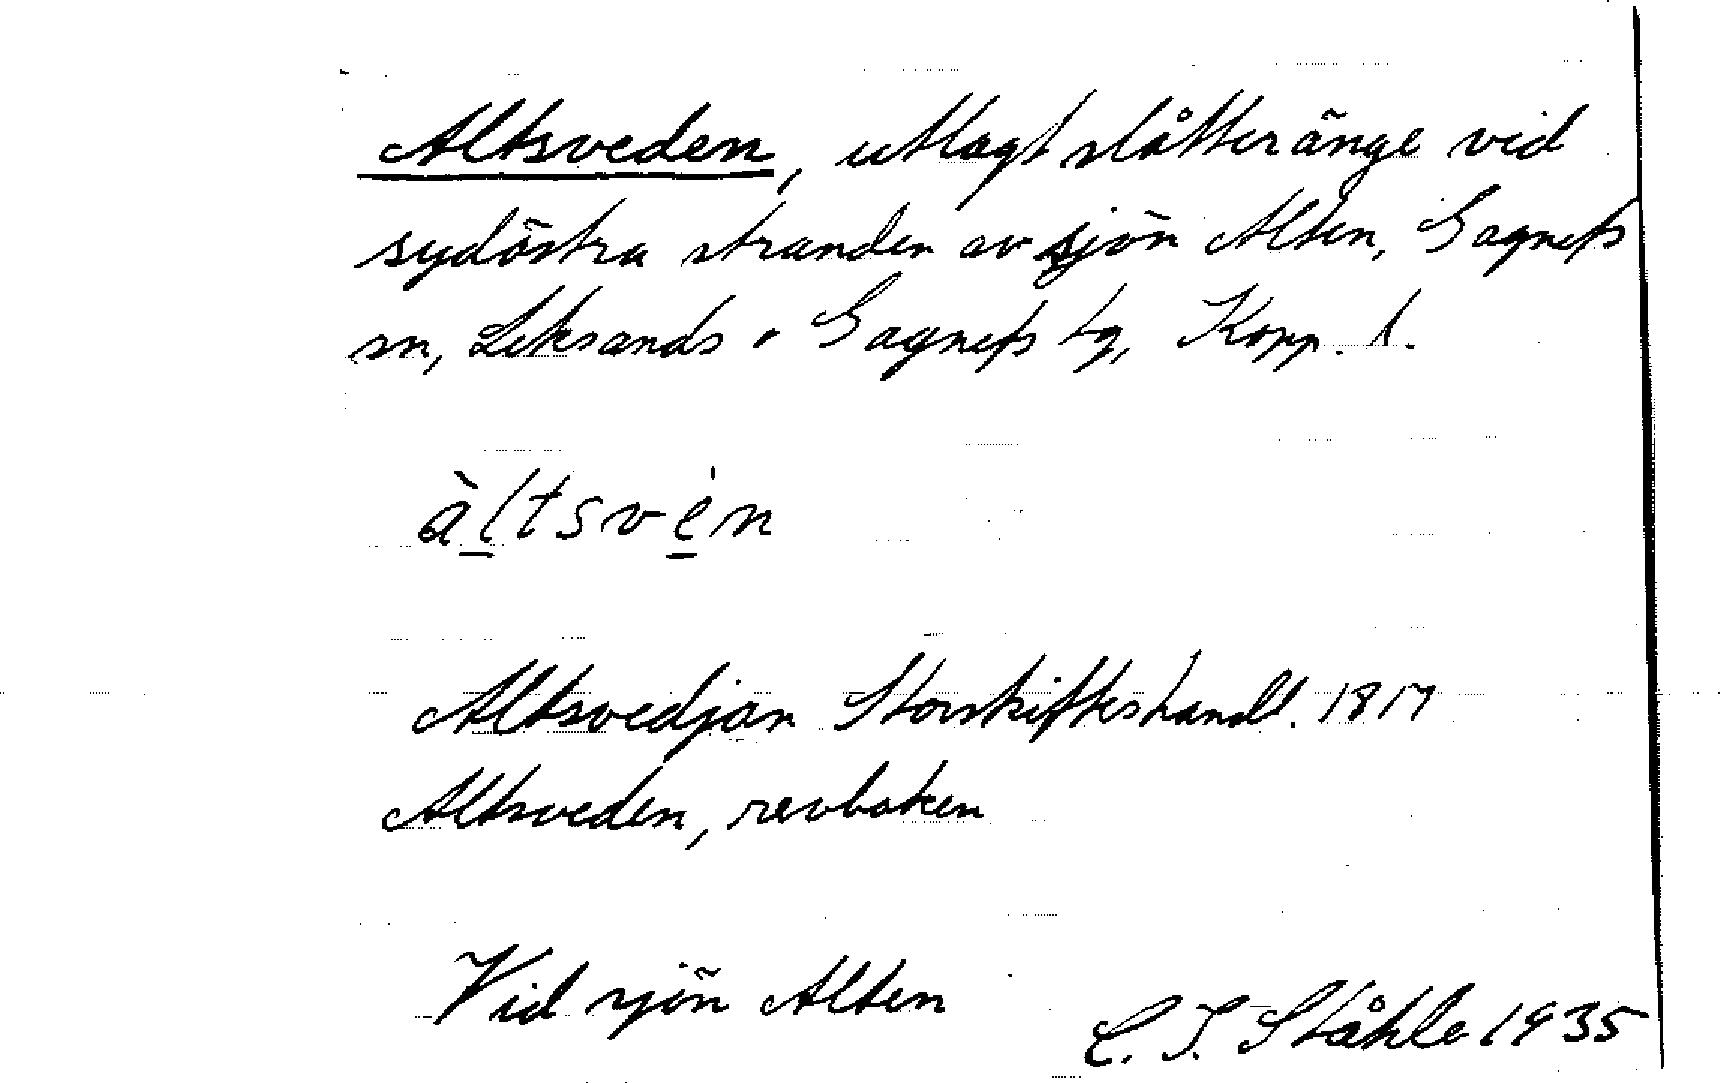 Altsveden, utlagt slåtteränge vid
sydöstra stranden av sjön Alten, Gagnefs
sn, Leksands o Gagnefs tg, Kopp. l.
àl̲tsve̲̍n
Altsvedjan Storskifteshandl. 1817
Altsveden, revboken
Vid sjön Alten
C. I. Ståhle 1935